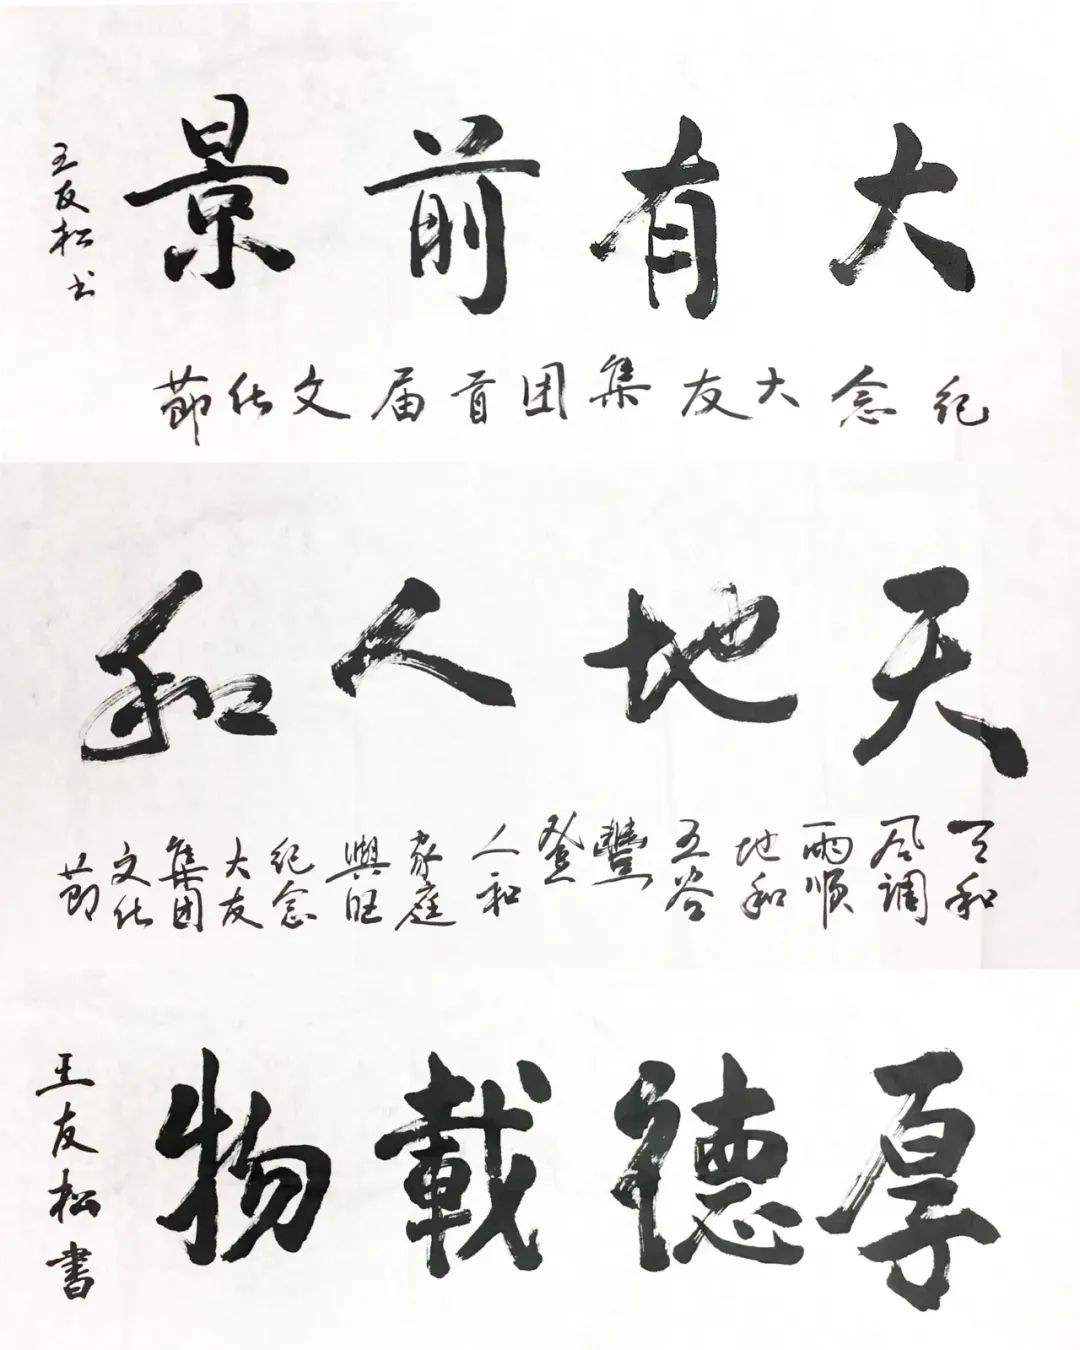 大有前景
纪念大友集团首届文化節
王友松书
天地人和
天和
风调
雨顺
地和
五谷
豐
登
人和
家庭
興旺
纪念
大友
集团
文化
節
厚德載物
王友松書